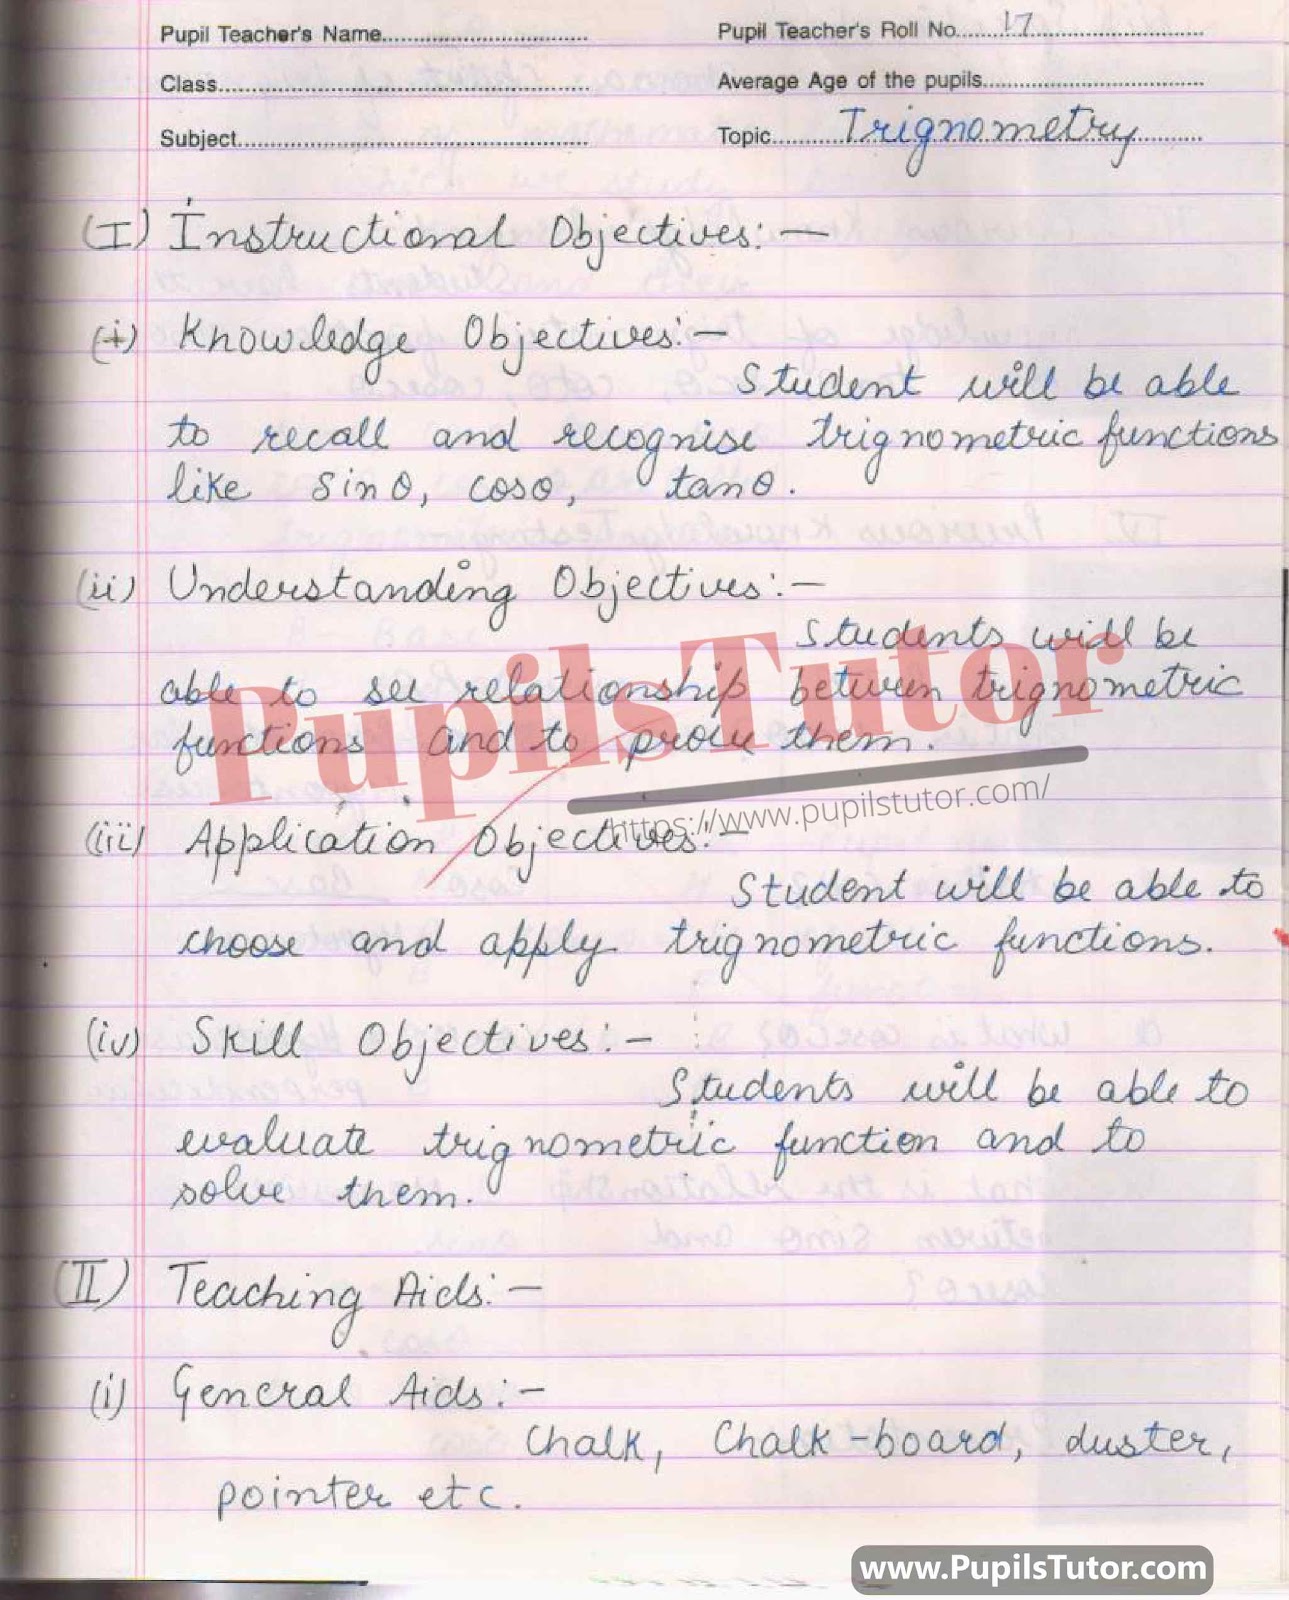 Pupil Teacher's Name............ Pupil Teacher's Roll No. 17
Class............ Average Age of the pupils............
Subject............ Topic Trignometry
(I) Instructional Objectives:—
(i) Knowledge Objectives:—
Student will be able
to recall and recognise trignometric functions
like sinθ, cosθ, tanθ.
(ii) Understanding Objectives:—
Students will be
able to see relationship between trignometric
functions and to prove them.
PupilsTutor
https://www.pupilstutor.com/
(iii) Application Objectives:—
Student will be able to
choose and apply trignometric functions.
(iv) Skill Objectives:—
Students will be able to
evaluate trignometric function and to
solve them.
(II) Teaching Aids:—
(i) General Aids:—
Chalk, Chalk-board, duster,
pointer etc.
www.PupilsTutor.com